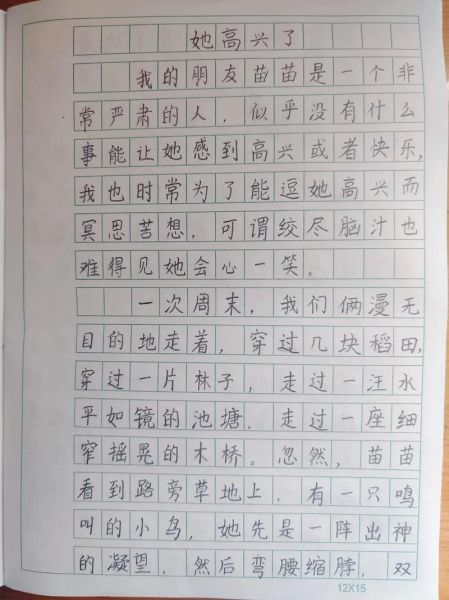 她高兴了
我的朋友苗苗是一个非
常严肃的人，似乎没有什么
事能让她感到高兴或者快乐，
我也时常为了能逗她高兴而
冥思苦想，可谓绞尽脑汁也
难得见她会心一笑。
一次周末，我们俩漫无
目的地走着，穿过几块稻田，
穿过一片林子，走过一汪水
平如镜的池塘，走过一座细
窄摇晃的木桥。忽然，苗苗
看到路旁草地上，有一只鸣
叫的小鸟，她先是一阵出神
的凝望，然后弯腰缩脖，双
12X15